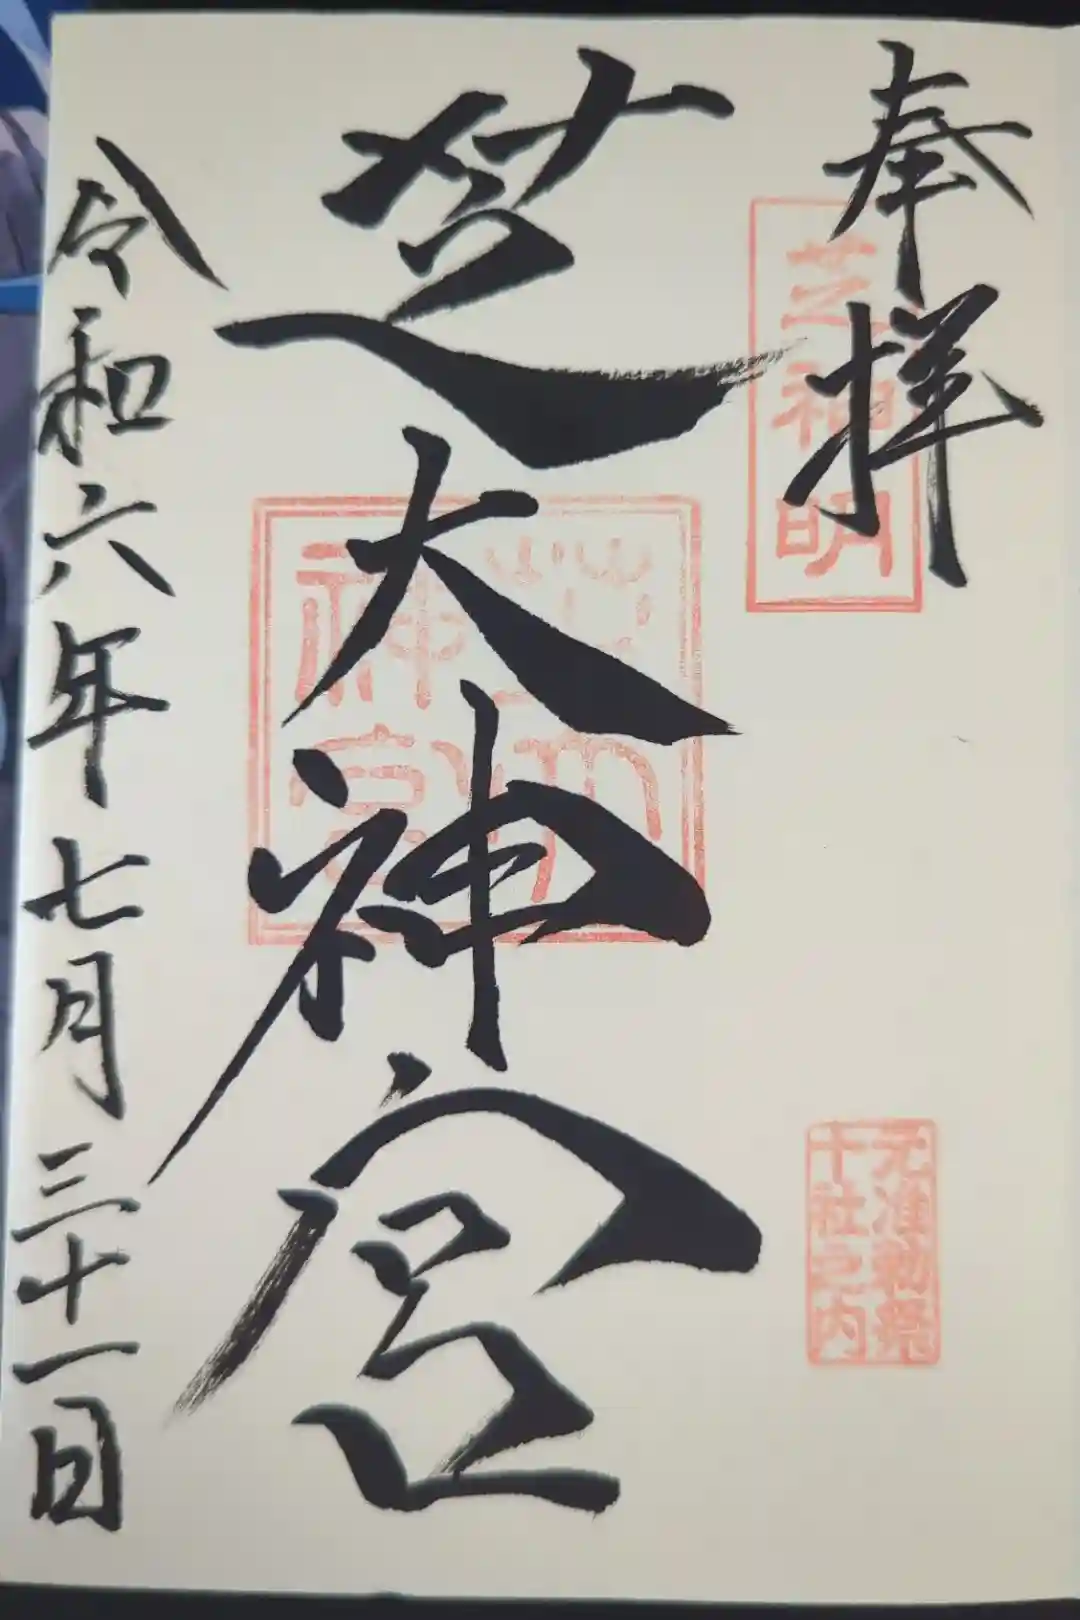 奉拝
芝神明
元准勅祭
十社之内
芝大神宮
芝大
神宮
令和六年七月三十一日